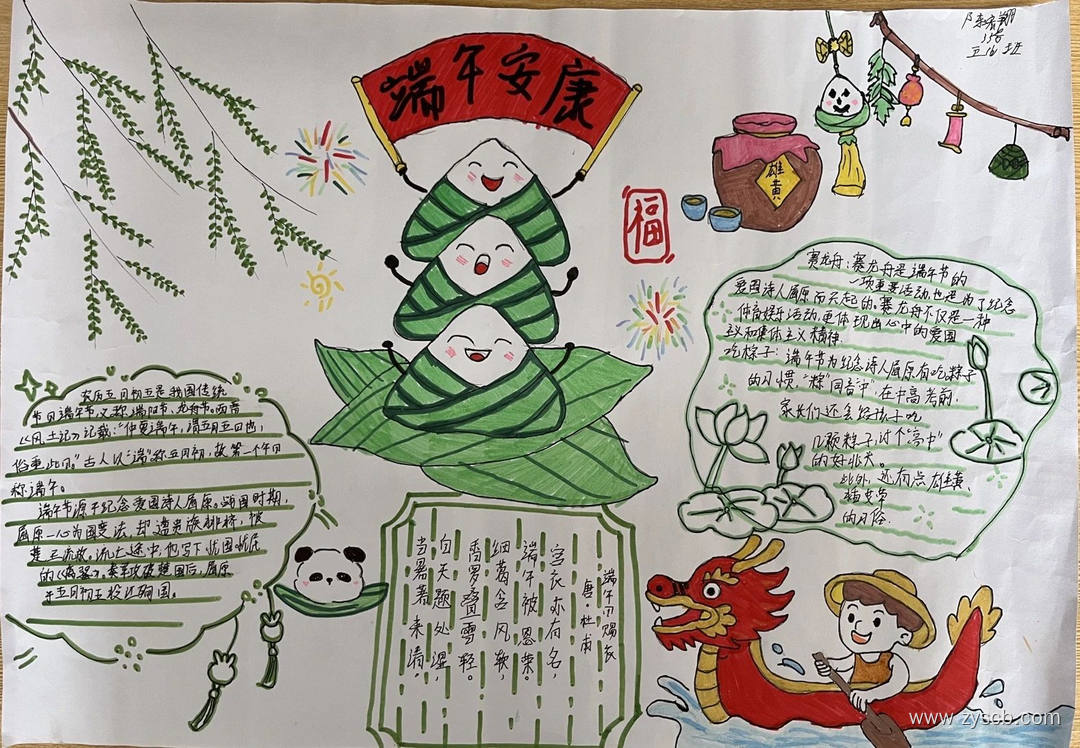 端午安康
15号
五16班
雄黄
福
农历五月初五是我国传统
节日端午节,又称端阳节、龙舟节。西晋
《风土记》记载:“仲夏端午,谓五月五日也,
俗重此日。”古人以“端”称五月初,故第一个午日
称端午。
端午节源于纪念爱国诗人屈原。战国时期,
屈原一心为国变法,却遭贵族排挤,被
楚王流放。流亡途中,他写下忧国忧民
的《离骚》。秦军攻破楚国后,屈原
于五月初五投江殉国。
赛龙舟:赛龙舟是端午节的
一项重要活动,也是为了纪念
爱国诗人屈原而兴起的,赛龙舟不仅是一种
体育娱乐活动,更体现出心中的爱国
主义和集体主义精神。
吃粽子:端午节为纪念诗人屈原有吃粽子
的习惯,“粽”同音“中”在中高考前,
家长们还会给孩子吃
几颗粽子,讨个“高中”
的好兆头。
此外,还有点雄黄、
插艾草
的习俗.
端午日赐衣
唐·杜甫
宫衣亦有名,
端午被恩荣。
细葛含风软,
香罗叠雪轻。
自天题处湿,
当暑著来清,
www.zyscb.com